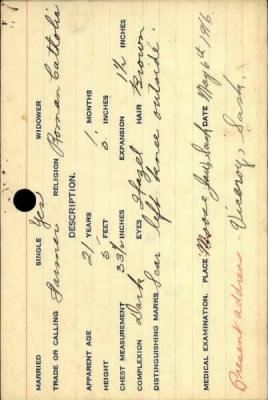 MARRIED SINGLE Yes WIDOWER
TRADE OR CALLING Farmer RELIGION Roman Catholic
DESCRIPTION.
APPARENT AGE 21 YEARS 1 MONTHS
HEIGHT 5 FEET 8 INCHES
CHEST MEASUREMENT 33½ INCHES EXPANSION 1½ INCHES
COMPLEXION Dark EYES Hazel HAIR Brown
DISTINGUISHING MARKS Scar left knee outside.
MEDICAL EXAMINATION. PLACE Moose Jaw, Sask DATE May 6th 1916
Present address - Viceroy, Sask.